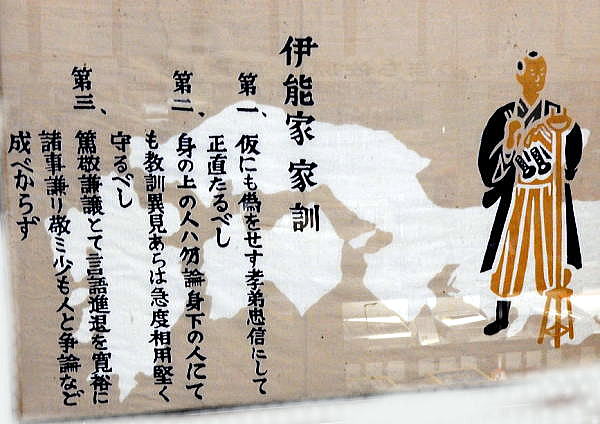 伊能家 家訓
第一、仮にも偽をせす孝弟忠信にして
正直たるべし
第二、身の上の人ハ勿論身下の人にて
も教訓異見あらは急度相用堅く
守るべし
第三、篤敬謙譲とて言語進退を寛裕に
諸事謙り敬ミ少も人と争論など
成べからず